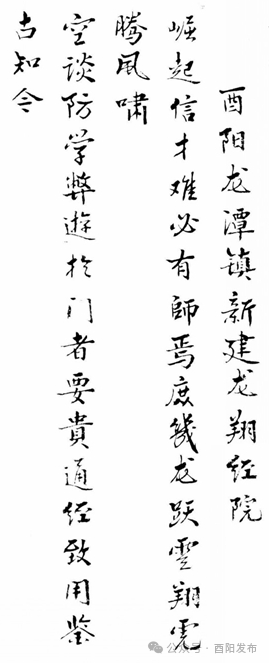 酉阳龙潭镇新建龙翔经院
崛起信才难必有師焉庶幾龙跃雲翔虎
腾风啸
空谈防学弊遊於门者要貴通经致用鉴
古知今
公众号 · 酉阳发布